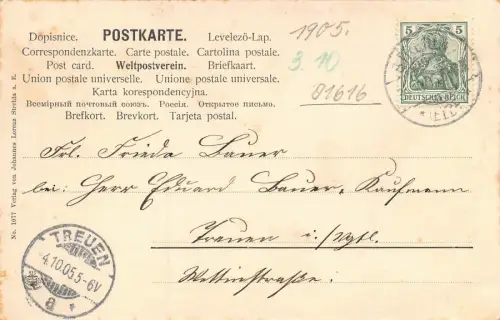 Dopisnice. POSTKARTE. Levelező-Lap.
Correspondenzkarte. Carte postale. Cartolina postale.
Post card. Weltpostverein. Briefkaart.
Union postale universelle. Unione postale universale.
Karta korespondencyjna.
Всемірный почтовый союзъ. Россія. Открытое письмо.
Brefkort. Brevkort. Tarjeta postal.
1905.
3.10
01616
5 5
DEUTSCHES REICH
Frl. Frieda Bauer
bei: Herr Eduard Bauer-Kaufmann
Treuen i/Vgtl.
Wettinstraße:
TREUEN
4.10.05.5-6V
a
No. 1077 Verlag von Johannes Lorenz Strehla a. E.